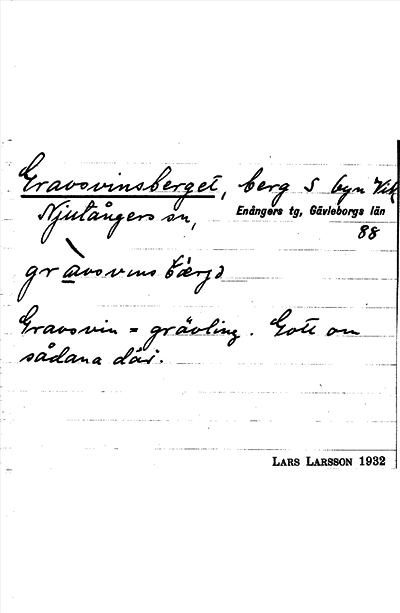 Gravsvinsberget, berg S byn Vik
Njutångers sn,
Enångers tg, Gävleborgs län
88
gravsvinsbærjə
Gravsvin = grävling. Gott om
sådana där.
LARS LARSSON 1932